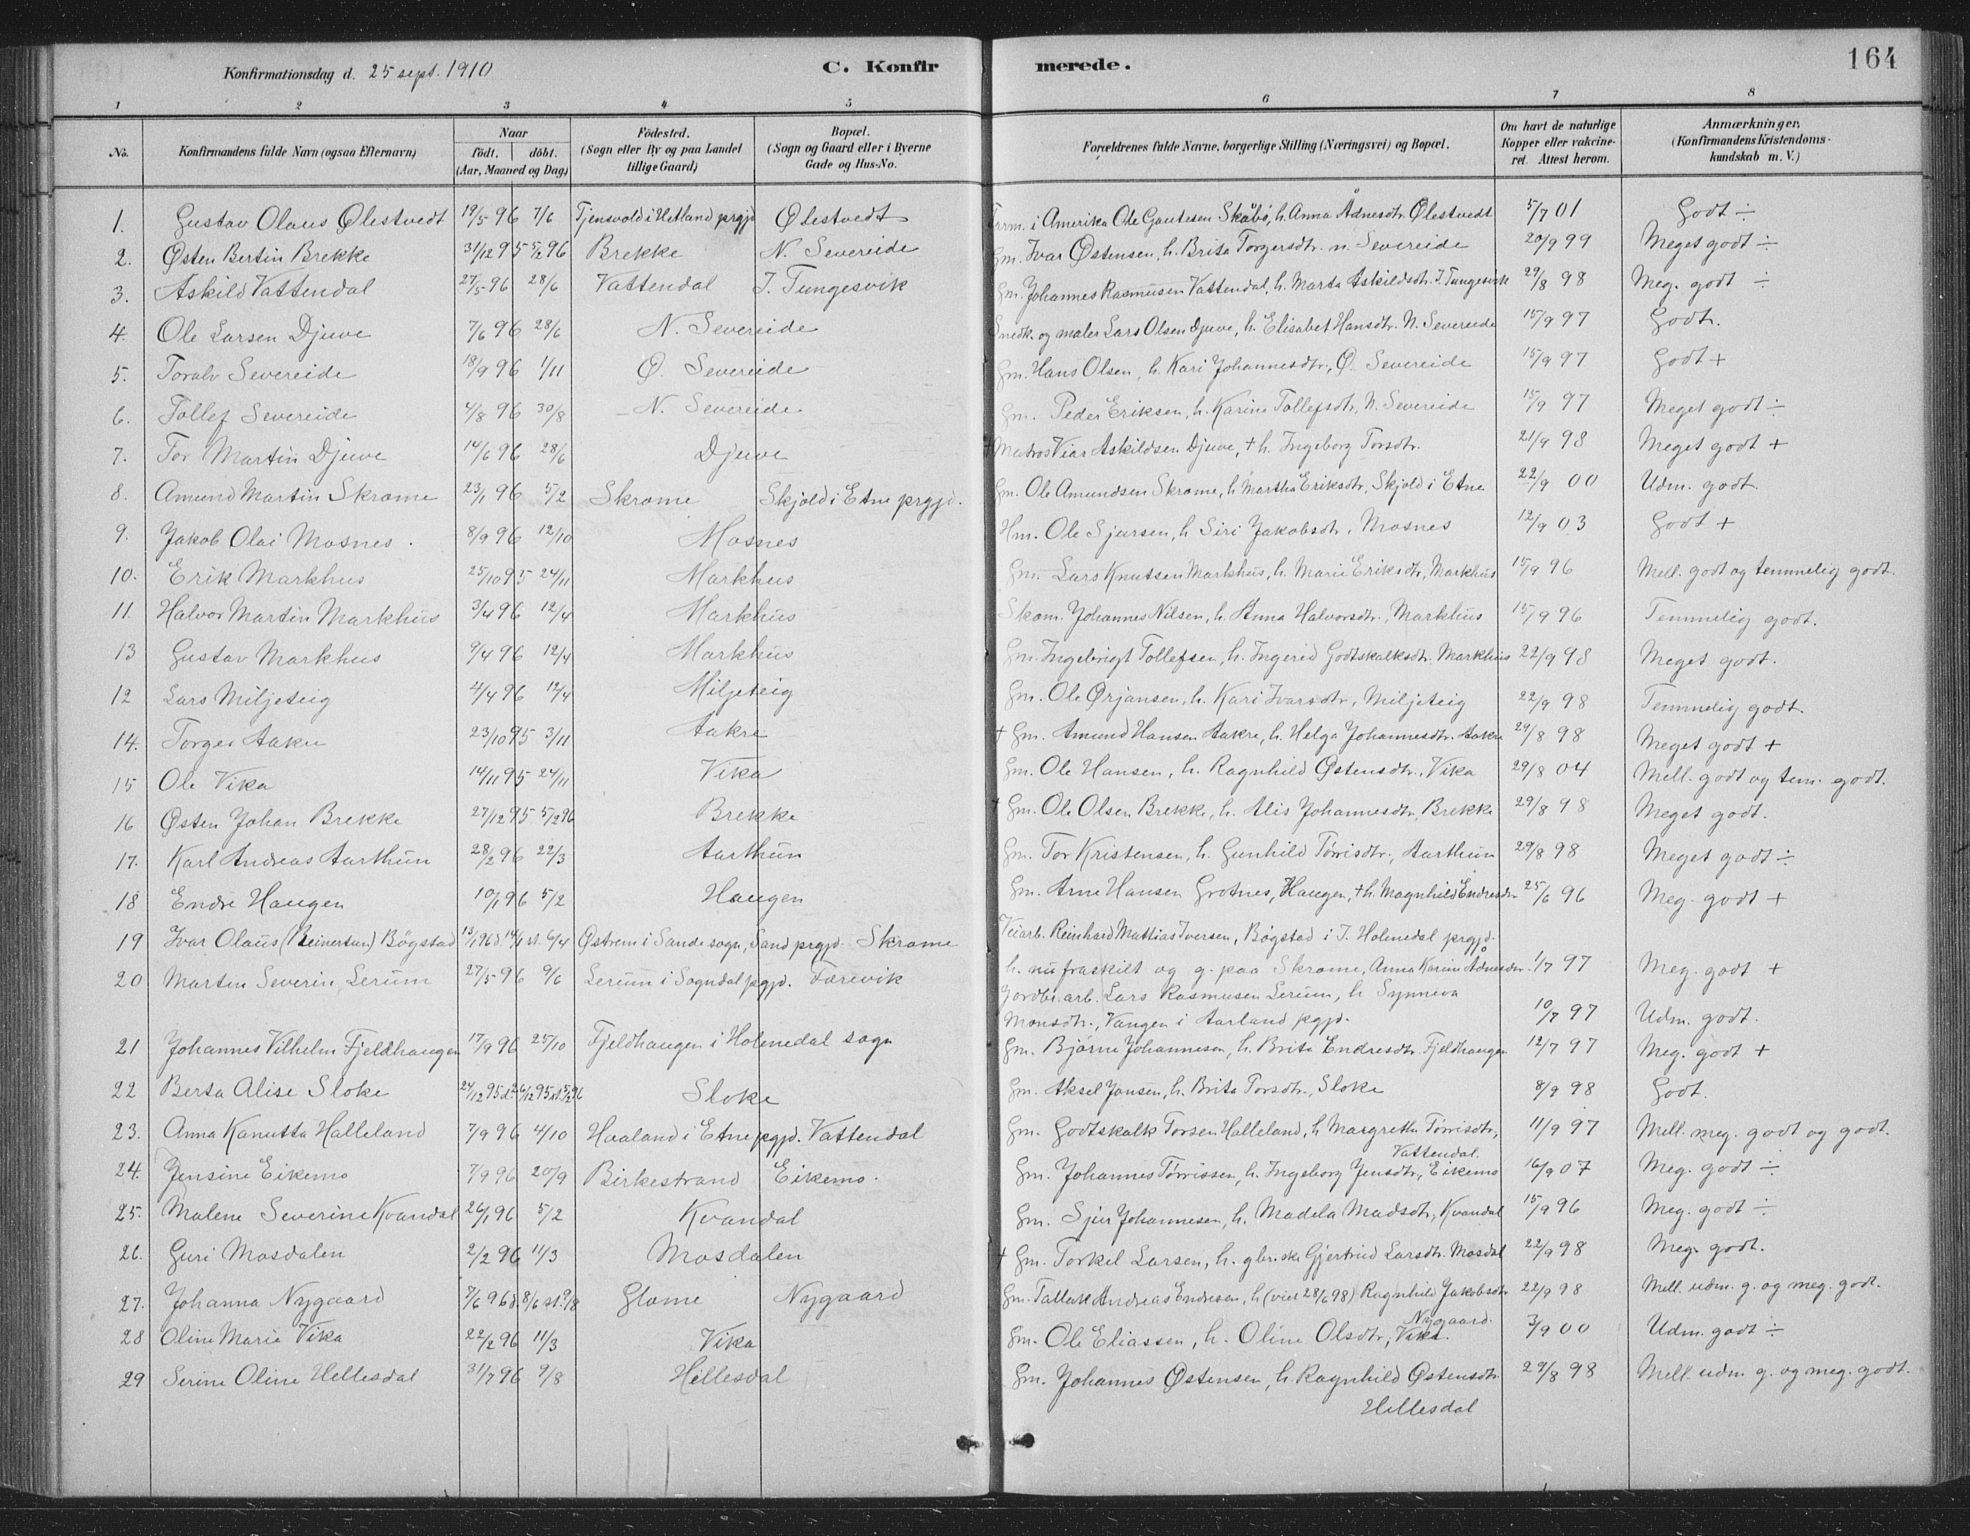 164
Konfirmationsdag d. 25 sept. 1910 C. Konfirmerede.
1 2 3 4 5 6 7 8
No. Konfirmandens fulde Navn (ogsaa Efternavn) Naar født. døbt. (Aar, Maaned og Dag) Fødested. (Sogn eller By og paa Landet tillige Gaard) Bopæl. (Sogn og Gaard eller i Byerne Gade og Hus-No. Forældrenes fulde Navne, borgerlige Stilling (Næringsvei) og Bopæl. Om havt de naturlige Kopper eller vakcineret. Attest herom. Anmærkninger. (Konfirmandens Kristendomskundskab m. V.)
1. Gustav Olaus Ølestvedt 19/5 96 7/6 Tjensvold i Hetland prgjd Ølestvedt Farm. i Amerika Ole Gautesen Skåbø, h. Anna Ådnesdtr. Ølestvedt 5/7 01 Godt ÷
2. Østen Bertin Brekke 31/12 95 5/2 96 Brekke N. Severeide Gm. Ivar Østensen, h. Brita Torgersdtr. N. Severeide 20/9 99 Meget godt ÷
3. Askild Vattendal 27/5 96 28/6 Vattendal I. Tungesvik Gm. Johannes Rasmusen Vattendal, h. Marta Askildsdtr. I. Tungesvik 29/8 98 Meg. godt ÷
4. Ole Larsen Djuve 7/6 96 28/6 N. Severeide Snedk. og maler Lars Olsen Djuve, h. Elisabet Hansdtr. N. Severeide 15/9 97 Godt.
5. Toralv Severeide 18/9 96 1/11 Ø. Severeide Gm. Hans Olsen, h. Kari Johannesdtr., Ø. Severeide 15/9 97 Godt +
6. Tollef Severeide 4/8 96 30/8 N. Severeide Gm. Peder Eriksen, h. Karine Tollefsdtr, N. Severeide 15/9 97 Meget godt ÷
7. Tor Martin Djuve 14/6 96 28/6 Djuve + Matros Viar Askildsen Djuve, + h. Ingeborg Torsdtr. 21/9 98 Meget godt +
8. Amund Martin Skrome 23/1 96 5/2 Skrome Skjold i Etne prgjd. Gm. Ole Amundsen Skrome, h. Martha Eriksdtr, Skjold i Etne 22/9 00 Udm. godt.
9. Jakob Olai Mosnes. 8/9 96 12/10 Mosnes Hm. Ole Sjursen, h. Siri Jakobsdtr, Mosnes 12/9 03 Godt +
10. Erik Markhus 25/10 95 24/11 Markhus Gm. Lars Knutsen Markhus, h. Marie Eriksdtr, Markhus 15/9 96 Mell. godt og temmelig godt.
11. Halvor Martin Markhus 3/4 96 12/4 Markhus Skom. Johannes Nilsen, h. Anna Halvorsdtr., Markhus 15/9 96 Temmelig godt.
13 Gustav Markhus 9/4 96 12/4 Markhus Gm. Ingebrigt Tollefsen, h. Ingerid Godtskalksdtr. Markhus 22/9 98 Meget godt.
12 Lars Miljeteig 4/4 96 12/4 Miljeteig Gm. Ole Ørjansen, h. Kari Ivarsdtr., Miljeteig 22/9 98 Temmelig godt.
14. Torger Aakre 23/10 95 3/11 Aakre + Gm. Amund Hansen Aakre, h. Helga Johannesdtr. Aakre 29/8 98 Meget godt +
15 Ole Vika 14/11 95 24/11 Vika Gm. Ole Hansen, h. Ragnhild Østensdtr., Vika 29/8 04 Mell. godt og tem. godt.
16 Østen Johan Brekke 27/12 95 5/2 96 Brekke + Gm. Ole Olsen Brekke, h. Alis Johannesdtr, Brekke 29/8 98 Meget godt.
17. Karl Andreas Aarthun 28/2 96 22/3 Aarthun Gm. Tor Kristensen, h. Gunhild Tørrisdtr., Aarthun 29/8 98 Meget godt ÷
18 Endre Haugen 10/1 96 5/2 Haugen Gm. Arne Hansen Grotnes, Haugen, + h. Magnhild Endresdtr 25/6 96 Meg. godt +
19 Ivar Olaus (Reinertsen) Bøgstad 13/1 96 d. 14/1 st. 6/4 Østrem i Sande sogn, Sand prgjd. Skrome Veiarb. Reinhard Mattias Iversen, Bøgstad i I. Holmedal prgjd.
h. nu fraskilt og g. paa Skrome, Anna Karine Ådnesdtr. 1/7 97 Meg. godt +
20 Morten Severin Lerum 27/5 96 9/6 Lerum i Sogndal pgjd. Farevik Jordbr. arb. Lars Rasmusen Lerum, h. Synneva
Monsdtr., Vangen i Aarland pgjd. 10/7 97 Udm. godt.
21 Johannes Vilhelm Fjeldhaugen 17/9 96 25/10 Fjeldhaugen i Holmedal sogn Gm. Bjørne Johannesen, h. Brita Endresdtr. Fjeldhaugen 12/7 97 Meg. godt +
22 Berta Alise Sloke 24/12 95 d. 26/12 95 st. 5/2 96 Sloke Gm. Aksel Jansen, h. Brita Torsdtr., Sloke 8/9 98 Godt.
23. Anna Kanutta Halleland 7/9 96 4/10 Haaland i Etne pgjd. Vattendal Gm. Godtskalk Torsen Halleland, h. Margretha Tørrisdtr, Vattendal. 11/9 97 Mell. meg. godt og godt.
24. Jensine Eikemo 7/9 96 20/9 Birkestrand Eikemo. Gm. Johannes Tørrissen, h. Ingeborg Jensdtr., Eikemo 16/9 07 Meg. godt ÷
25. Malene Severine Kvandal 26/1 96 5/2 Kvandal Gm. Sjur Johannesen, h. Madela Madsdtr, Kvandal 15/9 96 Meg. godt ÷
26. Guri Mosdalen 2/2 96 11/3 Mosdalen + Gm. Torkel Larsen, h. gbr.ske Gjertrud Larsdtr. Mosdal 22/9 98 Meg. godt.
27. Johanna Nygaard 7/6 96 d. 8/6 st. 9/8 Glome Nygaard Gm. Tallak Andreas Endresen, h. (viet 28/6 98) Ragnhild Jakobsdtr Nygaard. 22/9 98 Mell. udm. g. og meg. godt.
28 Oline Marie Vika 22/2 96 11/3 Vika Gm. Ole Eliassen, h. Oline Olsdtr, Vika. 3/9 00 Udm. godt ÷
29 Serine Oline Hellesdal 31/7 96 9/8 Hellesdal Gm. Johannes Østensen, h. Ragnhild Østensdtr. Hellesdal 29/8 98 Mell. udm. g. og meg. godt.